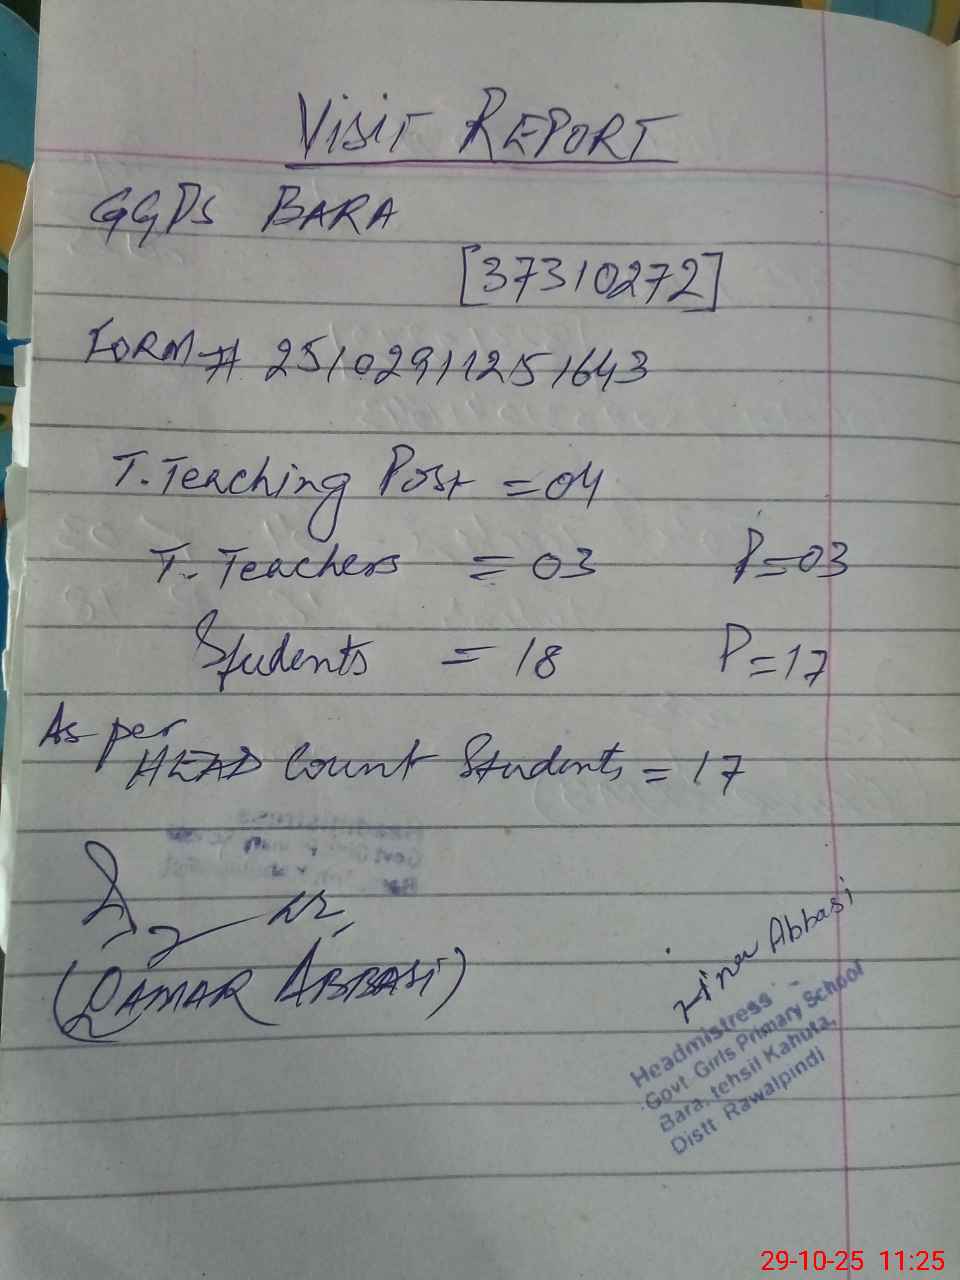 VISIT REPORT
GGPS BARA
[37310272]
FORM # 25102911251643
T. Teaching Post = 04
T. Teachers = 03 P=03
Students = 18 P=17
As per
HEAD Count Students = 17
(QAMAR ABBASI)
Abbasi
Headmistress
Govt. Girls Primary School
Bara, tehsil Kahuta,
Distt Rawalpindi
29-10-25 11:25